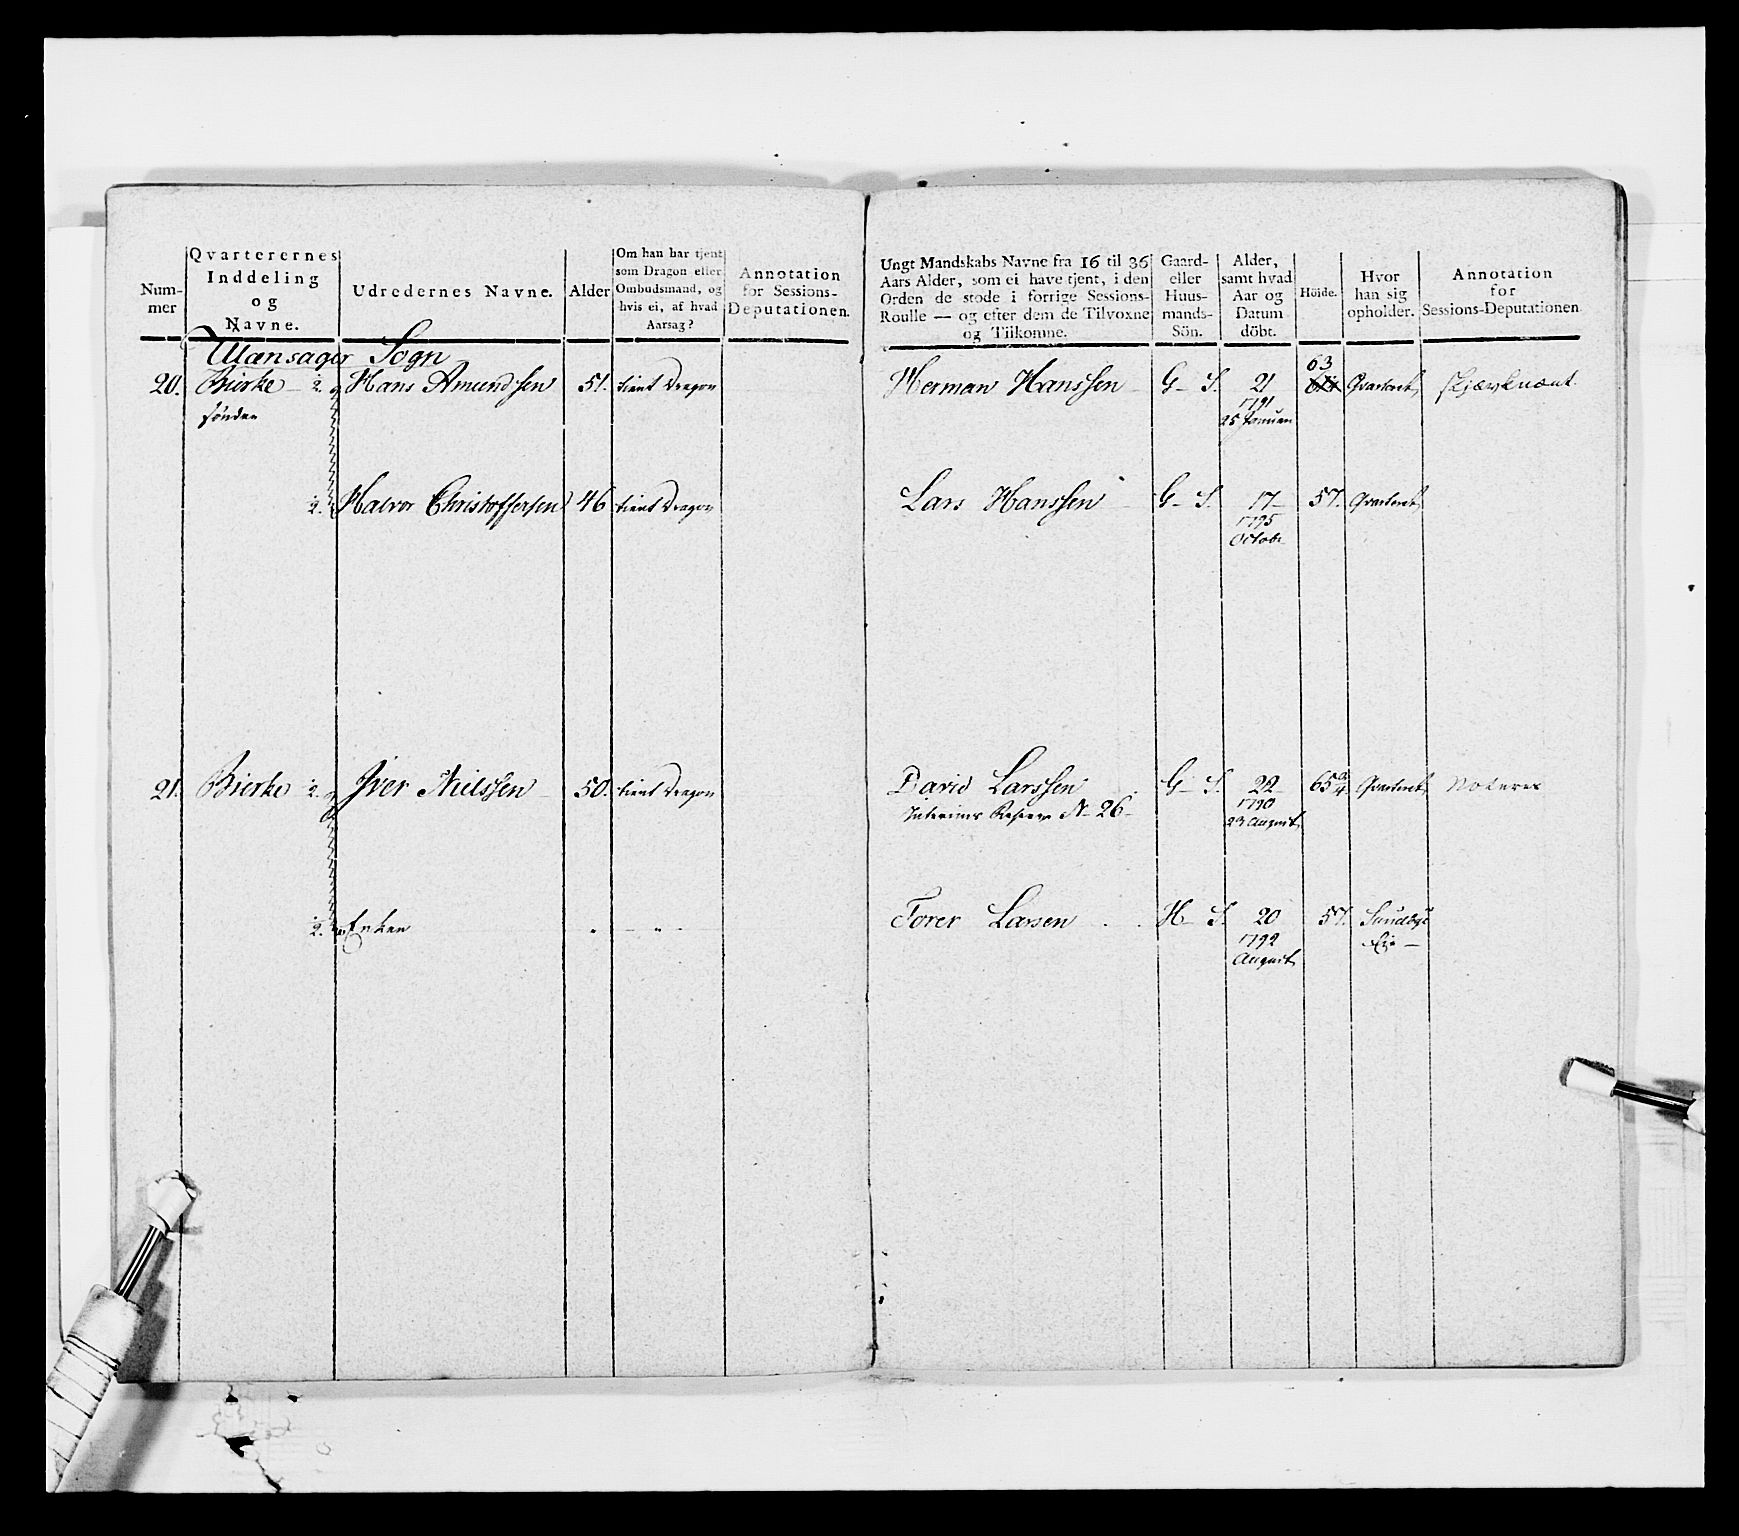 Num-
mer
Qvarterernes
Inddeling
og
Navne.
Udredernes Navne.
Alder
Om han har tjent
som Dragon eller
Ombudsmand, og
hvis ei, af hvad
Aarsag?
Annotation
for Sessions-
Deputationen.
Ullensager Sogn
20. Bierke 2. Hans Amundsen 51. tient Dragon
søndre
2. Halvor Christoffersen 46 tient Dragon
21. Bierke 2. Iver Nielssen 50. tient Dragon
2. Enken
Ungt Mandskabs Navne fra 16 til 36
Aars Alder, som ei have tjent, i den
Orden de stode i forrige Sessions-
Roulle — og efter dem de Tilvoxne
og Tilkomne.
Gaard-
eller
Huus-
mands-
Sön.
Alder,
samt hvad
Aar og
Datum
döbt.
Höide.
Hvor
han sig
opholder.
Annotation
for
Sessions-Deputationen
63
Herman Hanssen G- S. 21 Qvarteret
1791
25 Januar
Lars Hanssen G- S. 17- 57. Qvarteret
1795
Octobr
David Larssen G- S. 22 65 3/4 Qvarteret Noteres
Interims Reserv N- 26-
1790
23 August
Torer Larsen H- S. 20 57. Sundbye
1792 Eje -
August